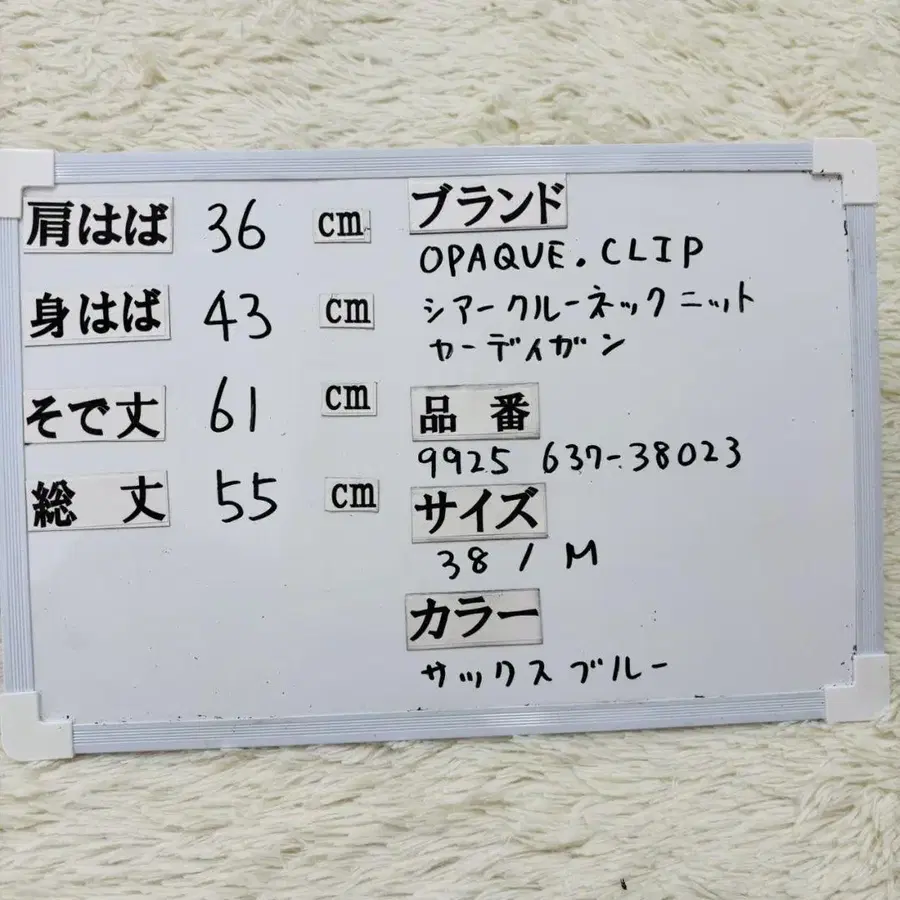 肩はば 36 cm
身はば 43 cm
そで丈 61 cm
総 丈 55 cm
ブランド
OPAQUE.CLIP
シアークルーネックニット
カーディガン
品 番
9925 637-38023
サイズ
38 / M
カラー
サックスブルー